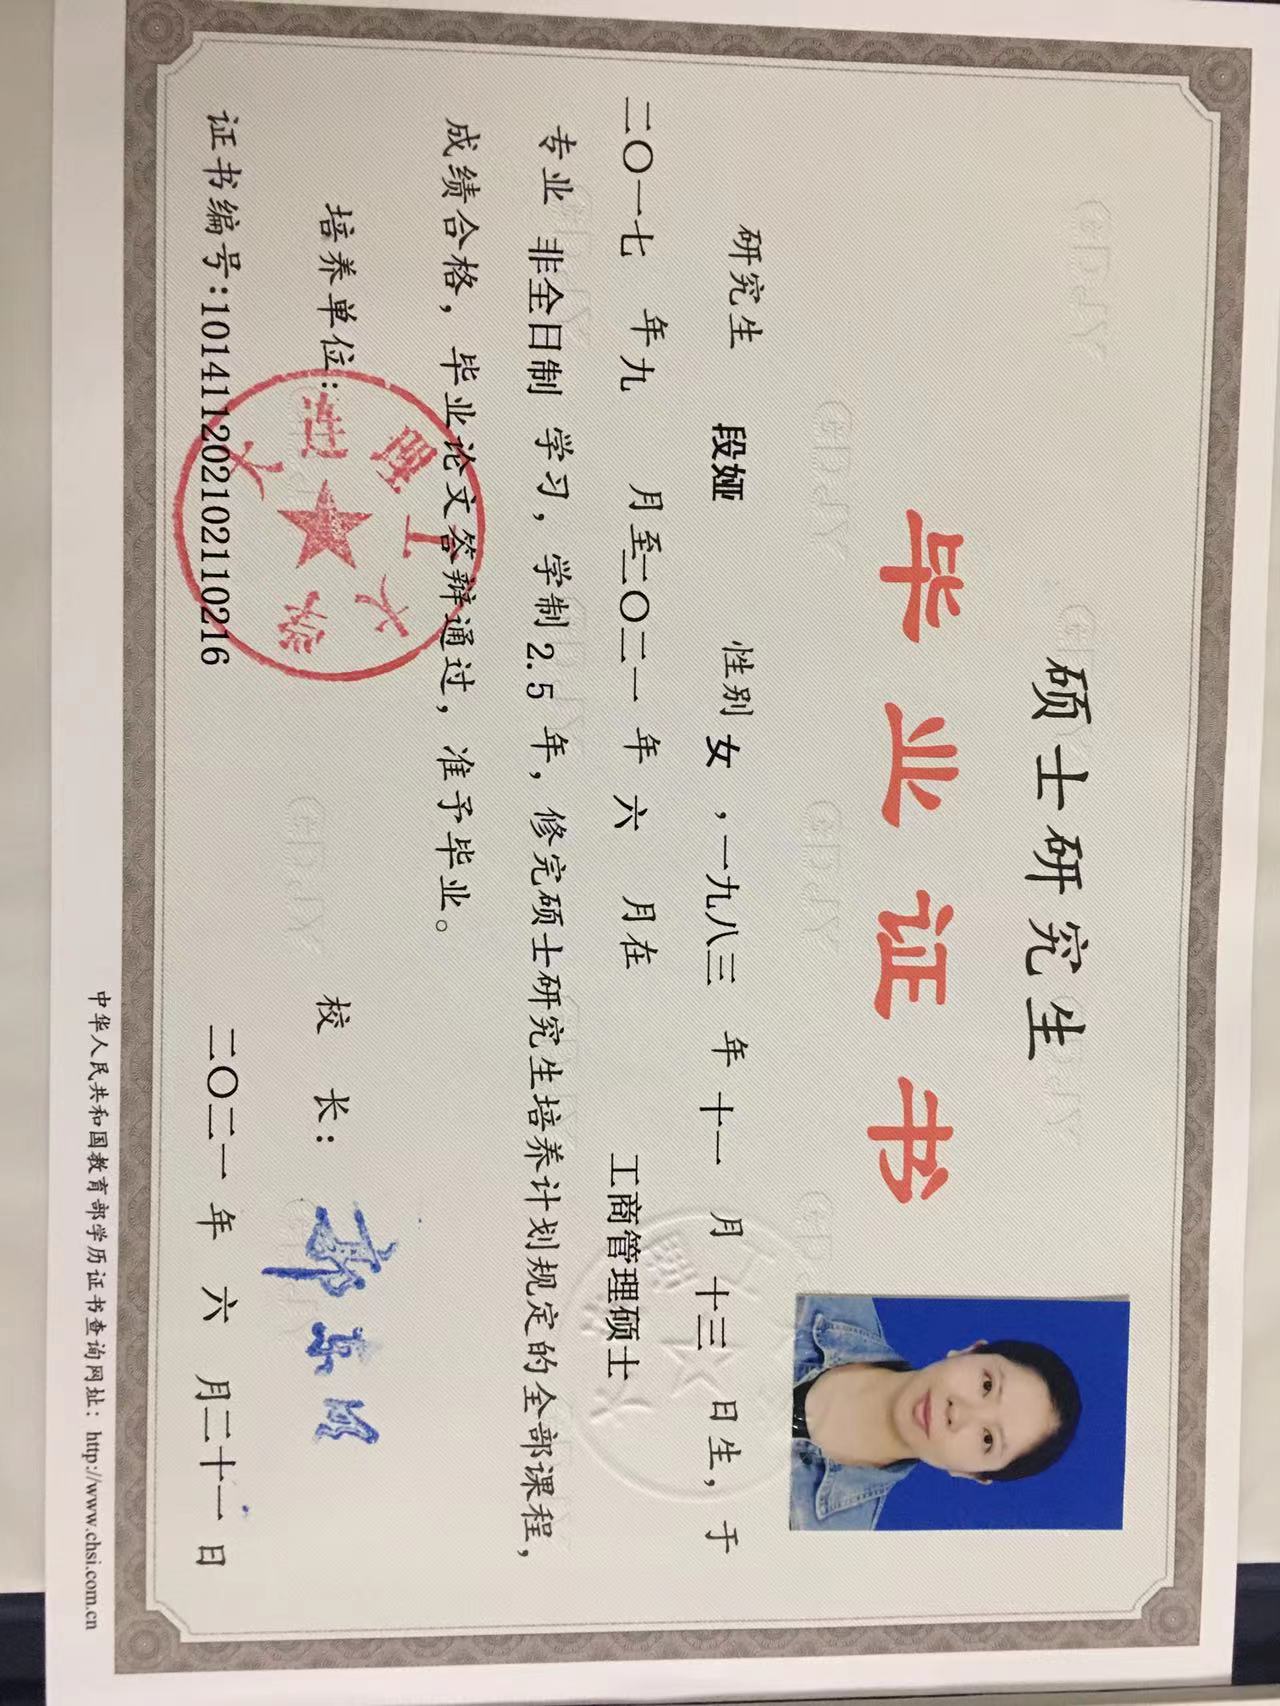 硕士研究生
毕业证书
研究生 段娅 性别 女 ，一九八三 年 十一 月 十三 日生，于
二〇一七 年九 月至二〇二一 年 六 月在 工商管理硕士
专业 非全日制 学习，学制2.5 年，修完硕士研究生培养计划规定的全部课程，
成绩合格，毕业论文答辩通过，准予毕业。
培养单位： 校 长：
大连理工大学
证书编号：101411202102110216 二〇二一 年 六 月二十一 日
中华人民共和国教育部学历证书查询网址：http://www.chsi.com.cn